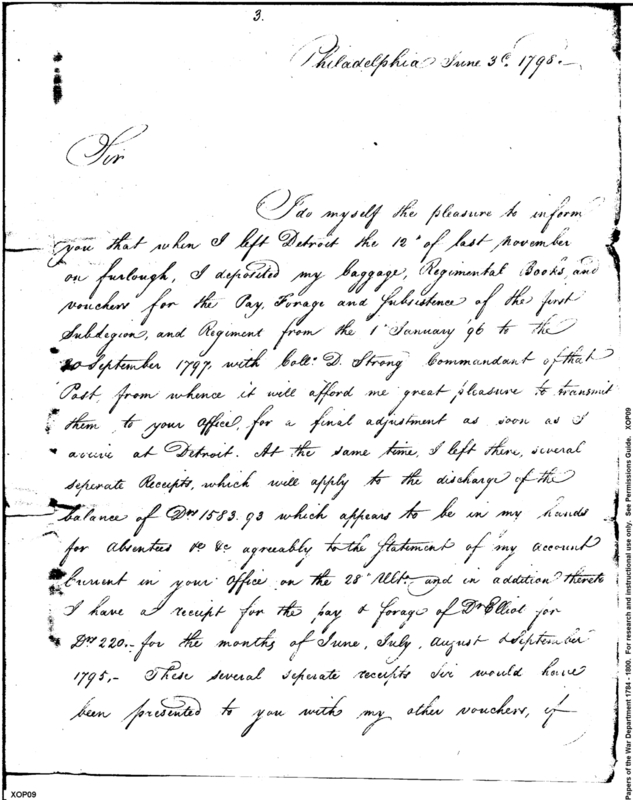 3.
Philadelphia June 3d. 1798.—
Sir
I do myself the pleasure to inform
you that when I left Detroit the 12th of last november
on furlough, I deposited my baggage, Regimental Books, and
vouchers for the Pay, Forage and Subsistence of the first
Sublegion, and Regiment from the 1st January 96 to the
30 September 1797, with Coll. D. Strong Commandant of that
Post, from whence it will afford me great pleasure to transmit
them to your Office, for a final adjustment as soon as I
arrive at Detroit. At the same time, I left there, several
seperate Receipts, which will apply to the discharge of the
balance of Drs 1583.93 which appears to be in my hands
for Absentees &c &c agreeably to the Statement of my account
Current in your Office on the 28th Ulto. and in addition thereto
I have a receipt for the pay & forage of Dr Elliot for
Drs 220.— for the months of June, July, August & September
1795,— These several seperate receipts Sir would have
been presented to you with my other vouchers, if
XOP09
Papers of the War Department 1784 - 1800. For research and instructional use only. See Permissions Guide. XOP09